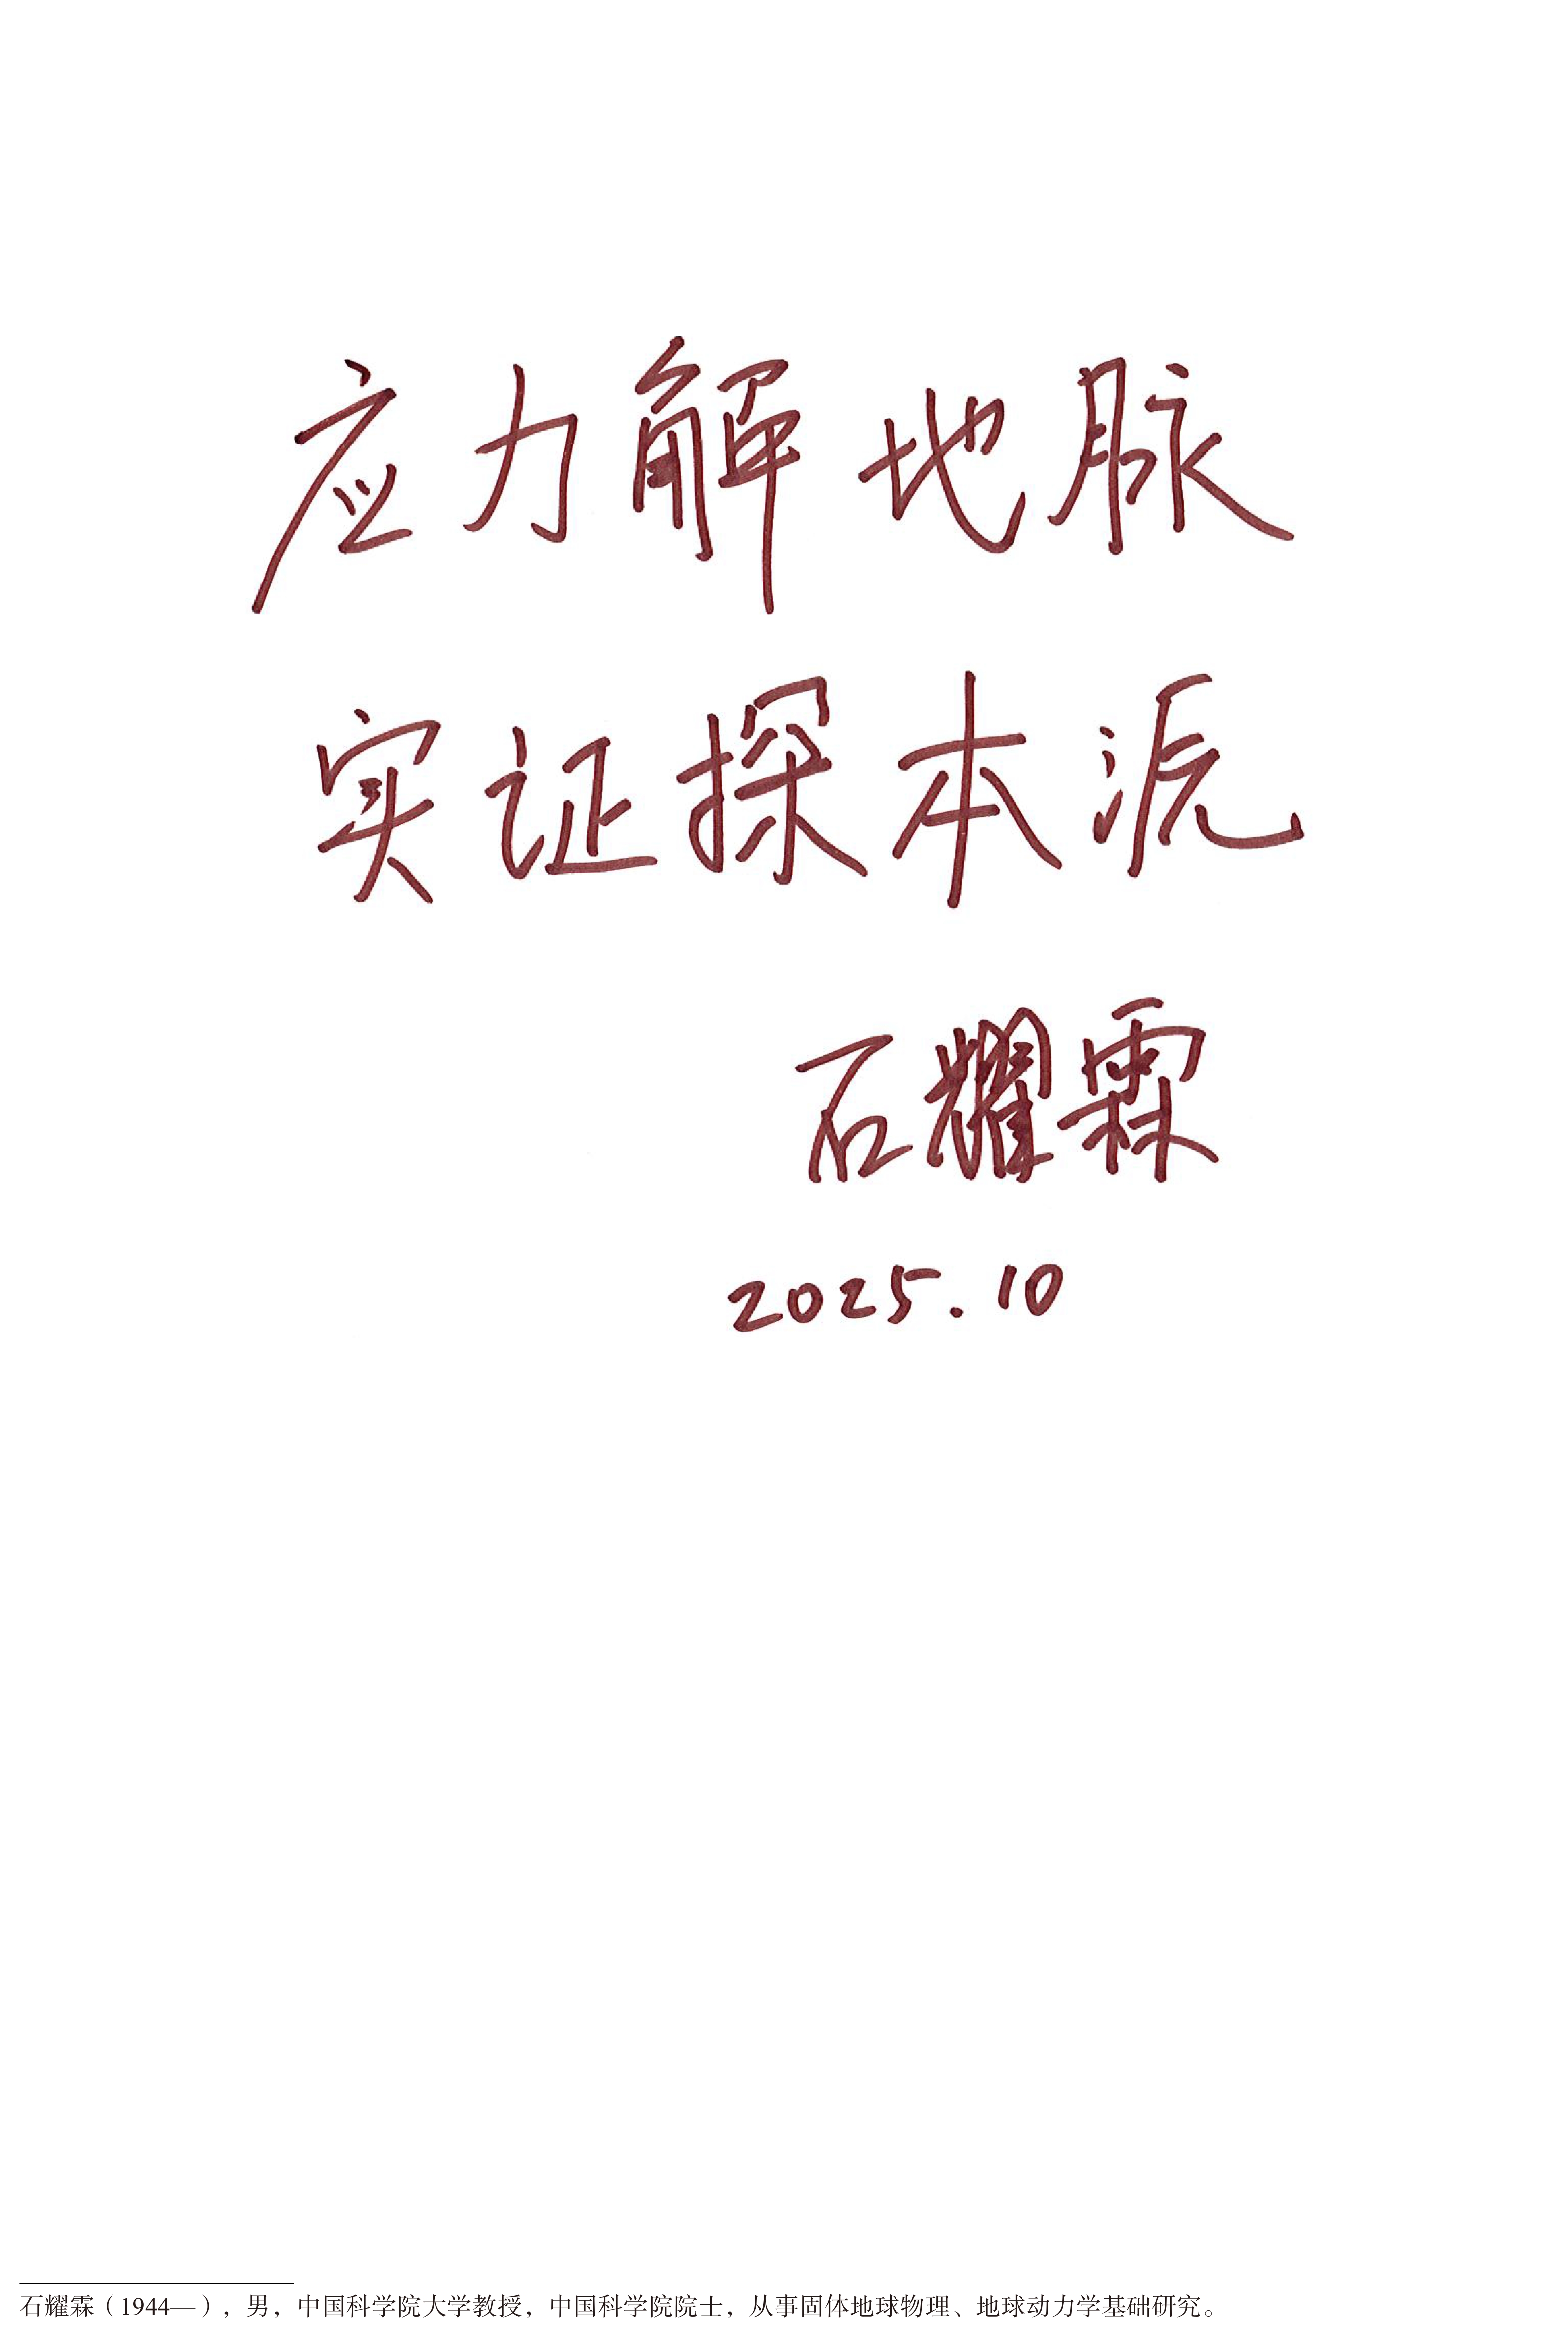 应力解地脉
实证探本
石耀霖
2025.10
石耀霖（1944—），男，中国科学院大学教授，中国科学院院士，从事固体地球物理、地球动力学基础研究。